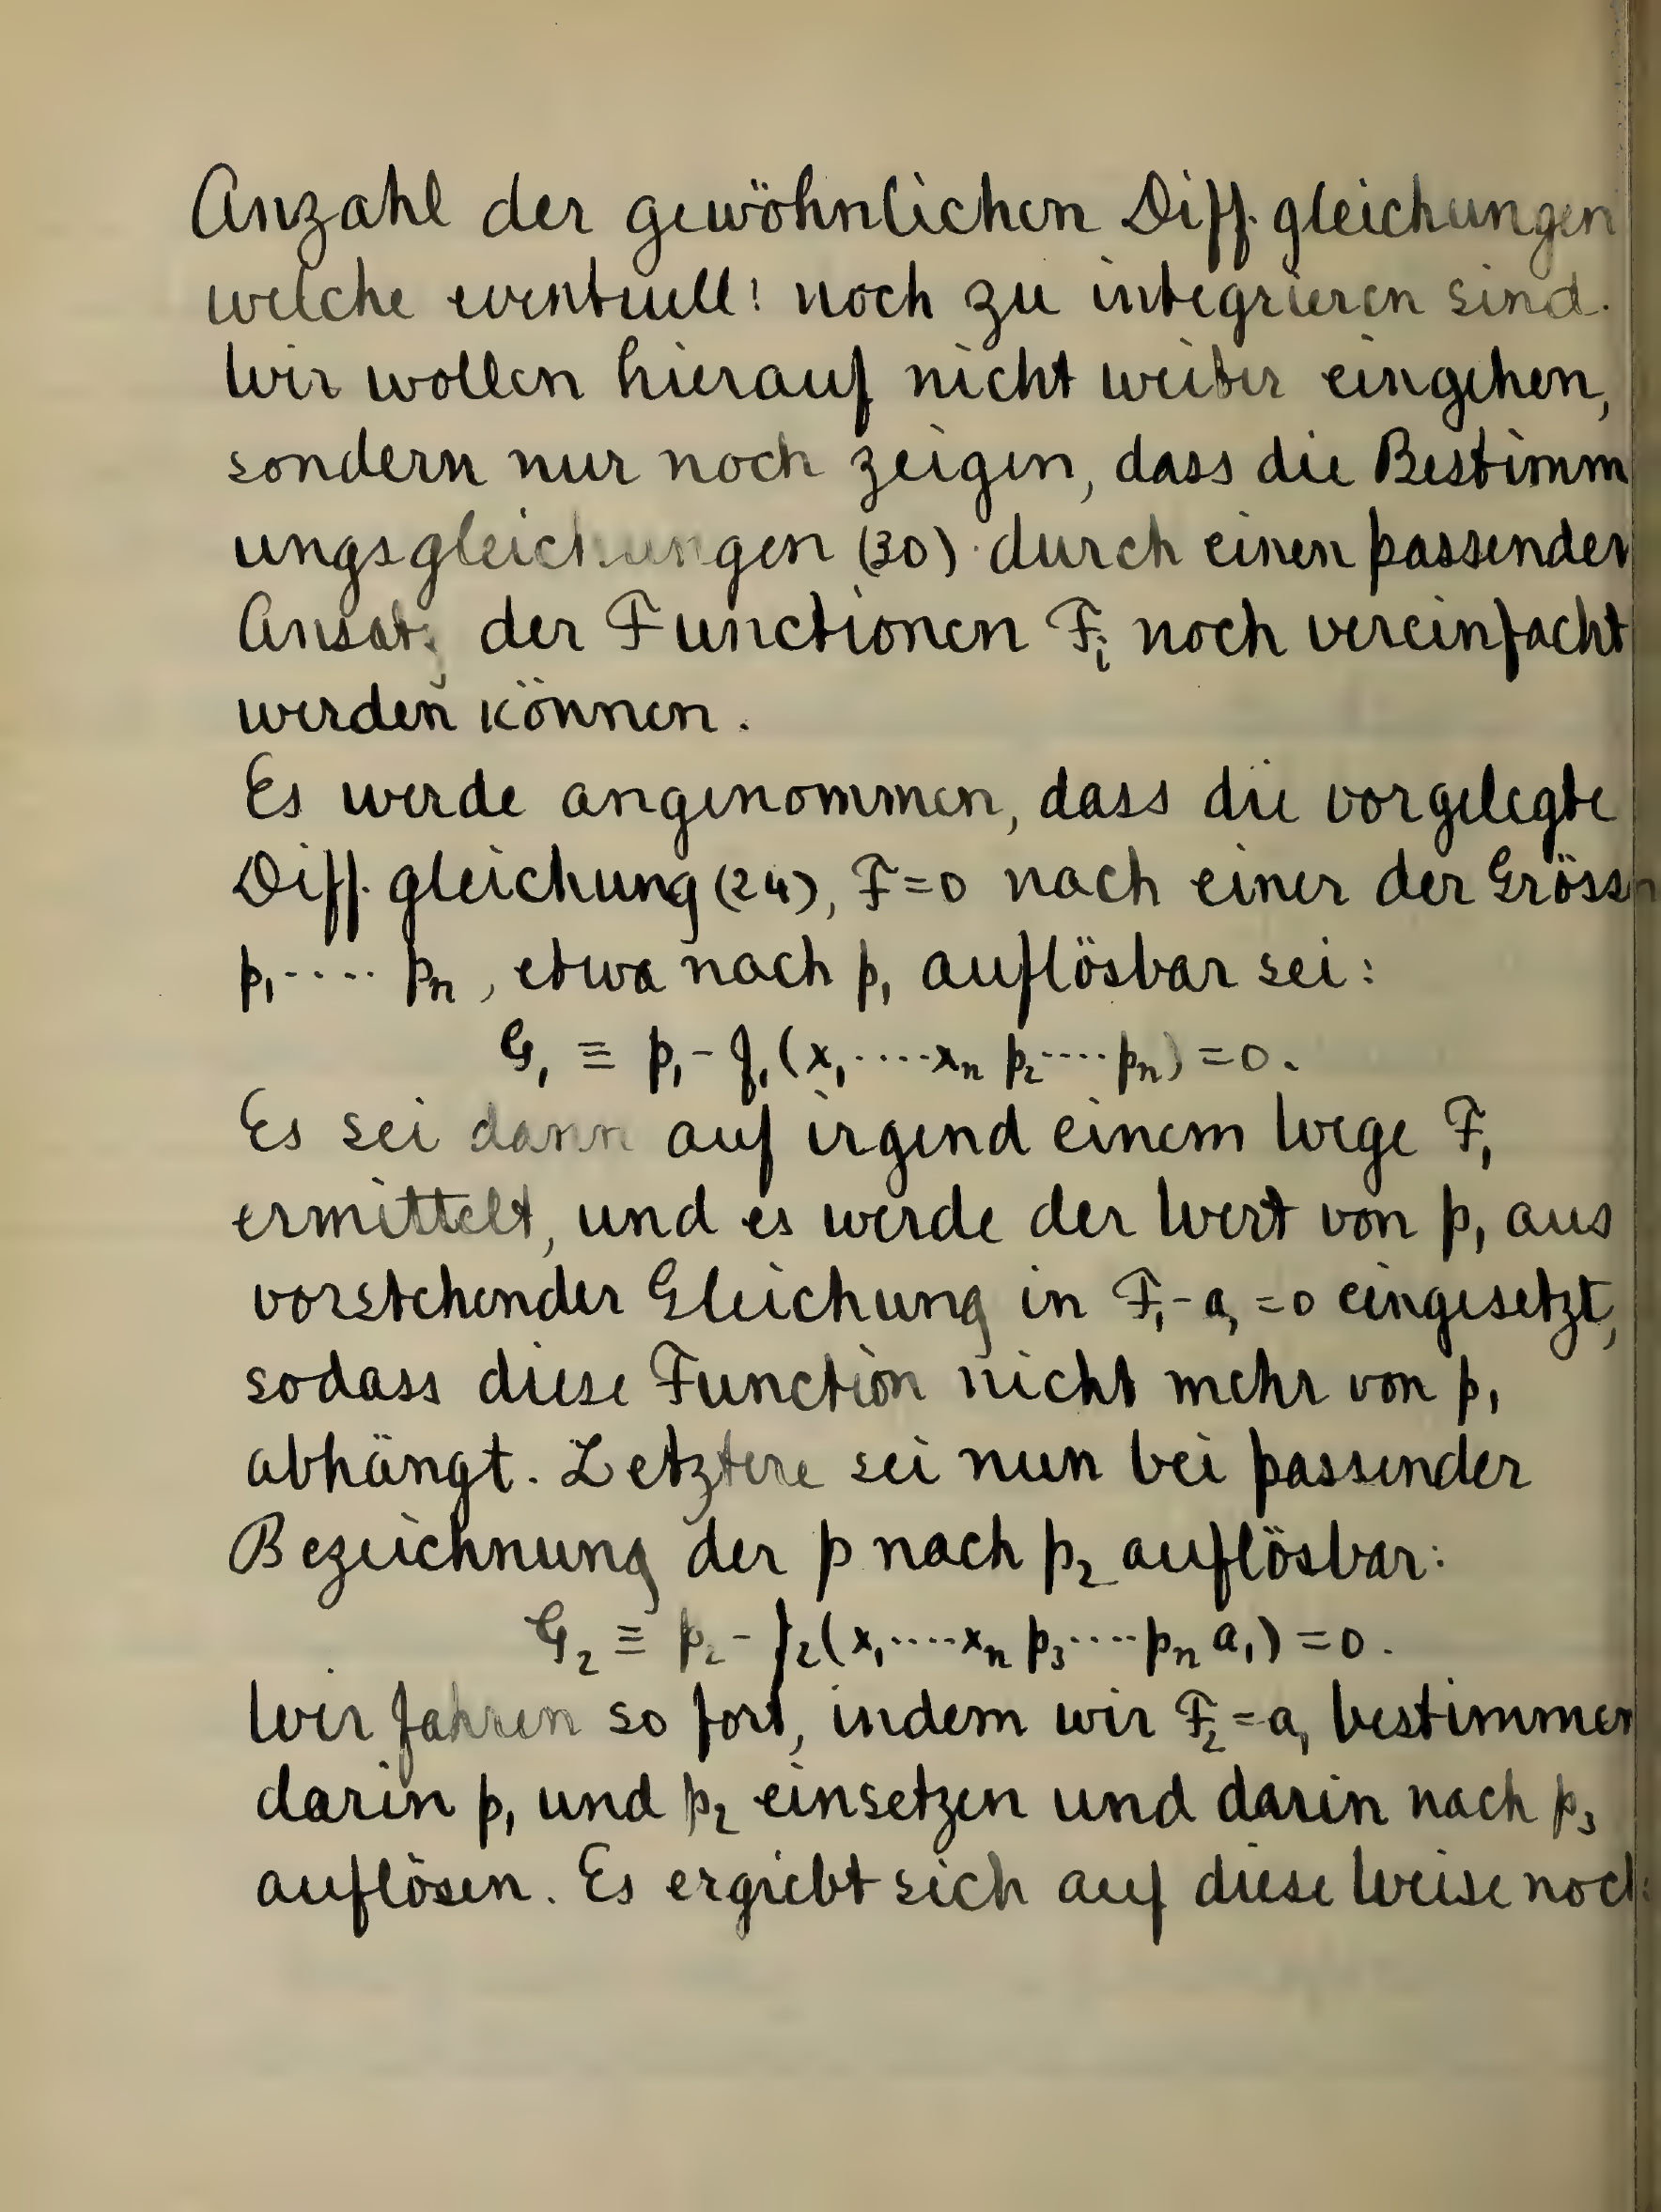 Anzahl der gewöhnlichen Diff. gleichungen
welche eventuell! noch zu integrieren sind.
Wir wollen hierauf nicht weiter eingehen,
sondern nur noch zeigen, dass die Bestimm
ungsgleichungen (30) durch einen passenden
Ansatz der Functionen Fᵢ noch vereinfacht
werden können.
Es werde angenommen, dass die vorgelegte
Diff. gleichung (24), F=0 nach einer der Grössen
p₁.... pₙ, etwa nach p₁ auflösbar sei:
G₁ ≡ p₁ - f₁(x₁....xₙ p₂....pₙ) = 0.
Es sei dann auf irgend einem Wege F₁
ermittelt, und es werde der Wert von p₁ aus
vorstehender Gleichung in F₁-a₁=0 eingesetzt,
sodass diese Function nicht mehr von p₁
abhängt. Letztere sei nun bei passender
Bezeichnung der p nach p₂ auflösbar:
G₂ ≡ p₂ - f₂(x₁....xₙ p₃....pₙ a₁) = 0.
Wir fahren so fort, indem wir F₂=a₁ bestimmen
darin p₁ und p₂ einsetzen und darin nach p₃
auflösen. Es ergiebt sich auf diese Weise noch